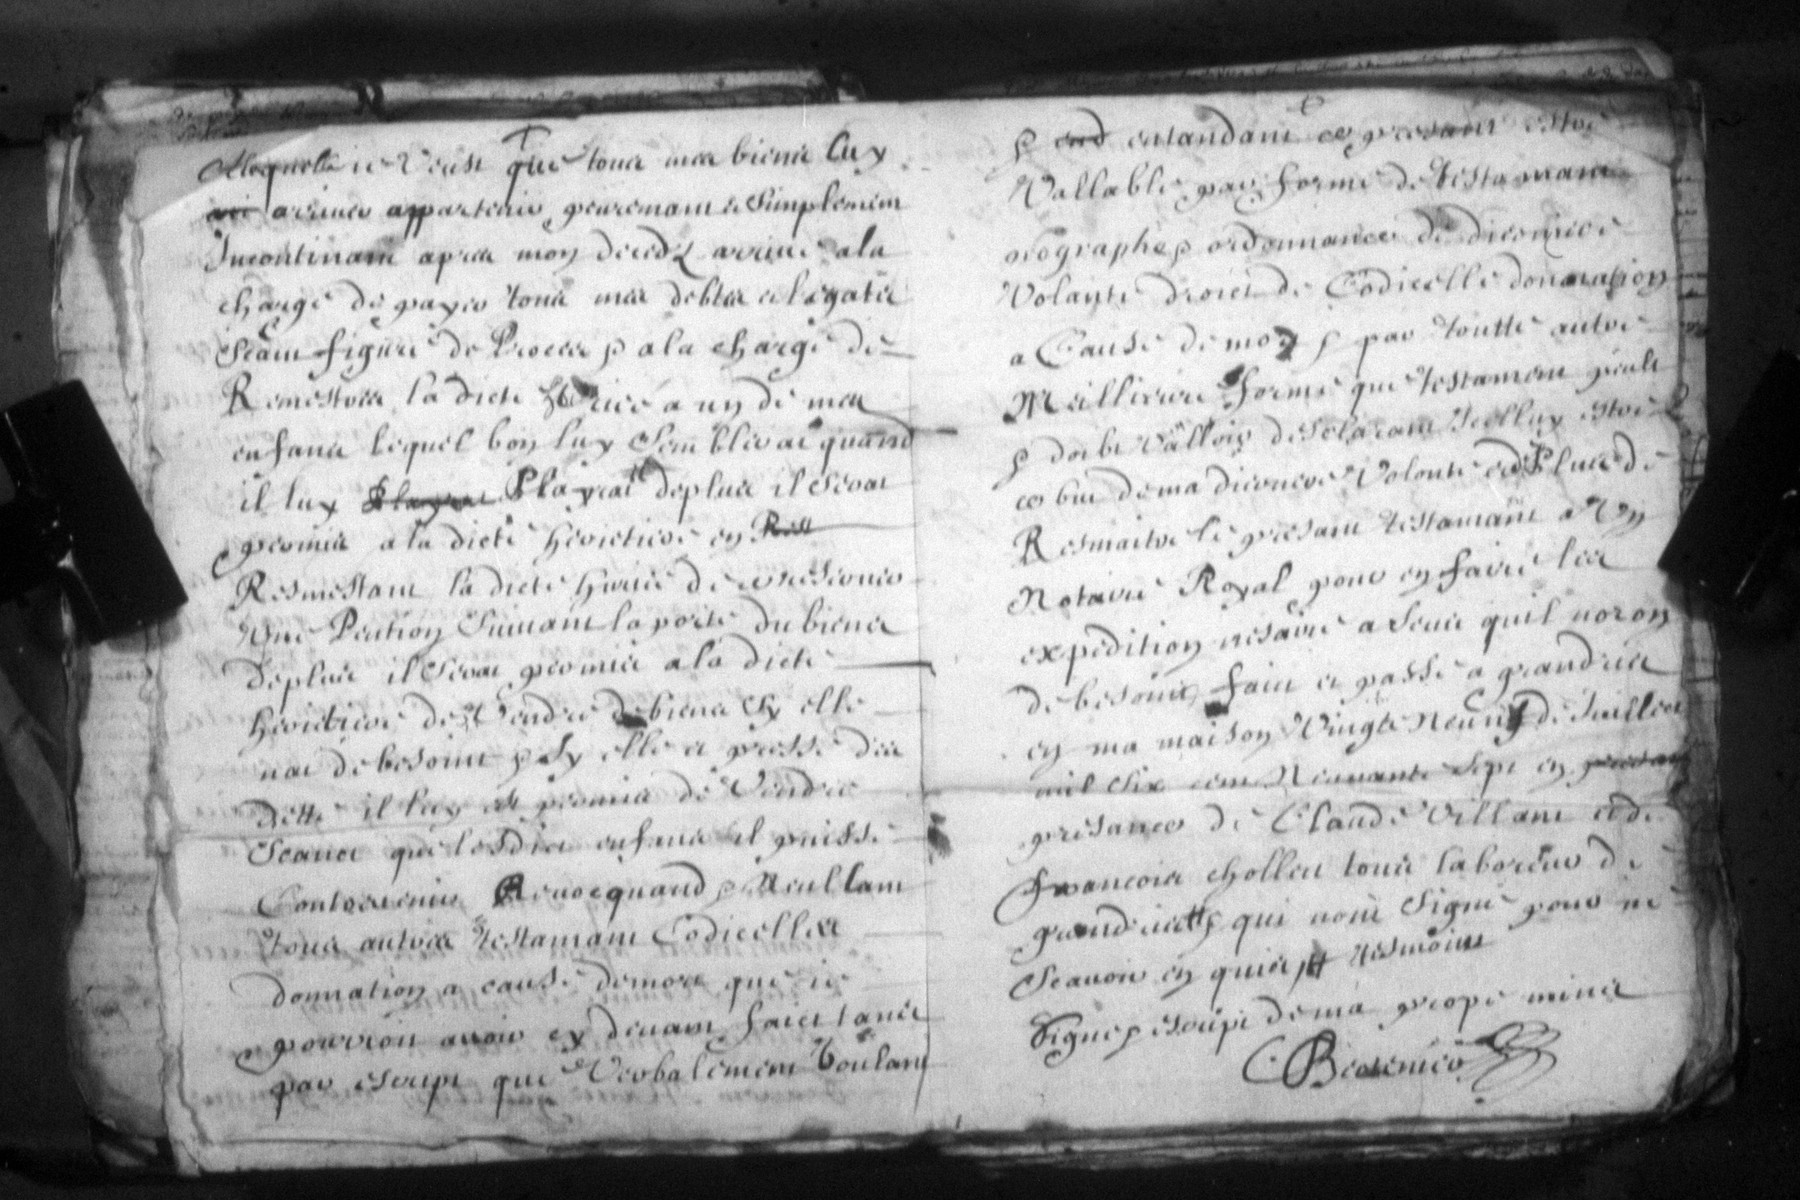 A laquelle ie Veust que tous mes biens luy
arriver appartenir peuremant & Simplement
Incontinant apres mon deceds arrivé a la
charge de payer tous mes debtes et legats
Sans figure de Proces p a la charge de
Remestres la dicte a un de mes
enfans lequel bon luy Semblerat quand
il luy Playrat Playrat deplus il Serat
permis a la dicte herictiere en
Resmestant la dicte de se reserver
Une Pention Suivant la porté du biens
deplus il Serat permis a la dicte
herictiere de Vendre de biens Sy elle
nat de besoint p Sy elle et pressé des
dette il luy est permis de Vendre
Seans que lesdits enfans il puisse
Contrevenir Revocquand p Neullant
tous autres testamant Codicelles
donnation a cause de mort que ie
pourroit avoir cy devant faict tant
par escript que Verbalement Voulant
p end entandant ce presant estre
Vallable par forme de testamant
orographe p ordonnance de derniere
Volanté droict de Codicelle donnation
a Cause de mort p par toutte autre
Meillieure forme que testament peult
p doibt Valloir desclarant Icelluy estre
ce but de ma derniere Volonté et Plus de
Resmaitre le presant testamant a Un
Notaire Royal pour en faire les
expedition nesaire a seux quil noron
de besoint faict et passé a grandris
en ma maison Vingte Neufz de Juillet
mil Six cent Nonante Sept en presan
presance de Claude Villani et de
Francois chollet tous laboreur de
grandris p qui nont Signé pour ne
Scavoir en quis testmoint
Signe p escript de ma prope mains